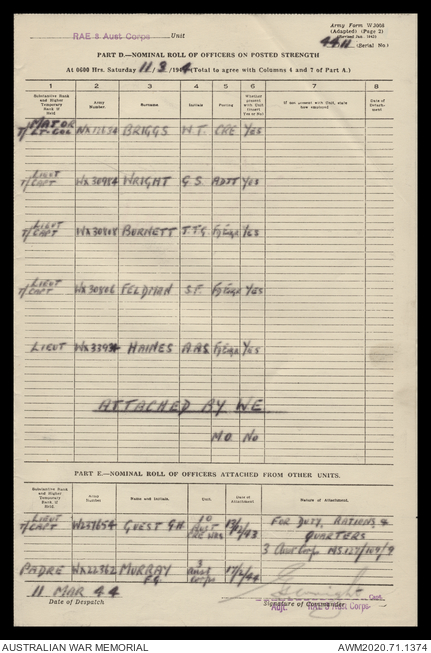 RAE 3 Aust Corps Unit
Army Form W.3008
(Adapted) (Page 2)
44.11 (Serial No.)
PART D.—NOMINAL ROLL OF OFFICERS ON POSTED STRENGTH
At 0600 Hrs. Saturday 11/3/1944 (Total to agree with Columns 4 and 7 of Part A.)
1 2 3 4 5 6 7 8
Substantive Rank and Higher Temporary Rank if Held
Army Number
Surname
Initials
Posting
Whether present with Unit (insert Yes or No)
If not present with Unit, state how employed
Date of Detachment
MAJOR
T/LT-COL BRIGGS W.T. CRE YES
LIEUT
T/CAPT WRIGHT G.S. ADJT YES
LIEUT
T/CAPT BURNETT J.T.G. YES
LIEUT
T/CAPT FELDMAN S.F. YES
LIEUT HAINES A.A.S. YES
ATTACHED BY WE
MO NO
PART E.—NOMINAL ROLL OF OFFICERS ATTACHED FROM OTHER UNITS.
Substantive Rank and Higher Temporary Rank if Held
Army Number
Name and Initials.
Unit.
Date of Attachment
Nature of Attachment.
LIEUT
T/CAPT GUEST G.H. 10 Aust FOR DUTY, RATIONS &
QUARTERS
3 Aust Corps
PADRE MURRAY F.G. 3 Aust Corps 17/2/44
11 MAR 44
Date of Despatch
Capt.
Signature of Commander
Adjt. RAE 3 Aust Corps
AUSTRALIAN WAR MEMORIAL
AWM2020.71.1374